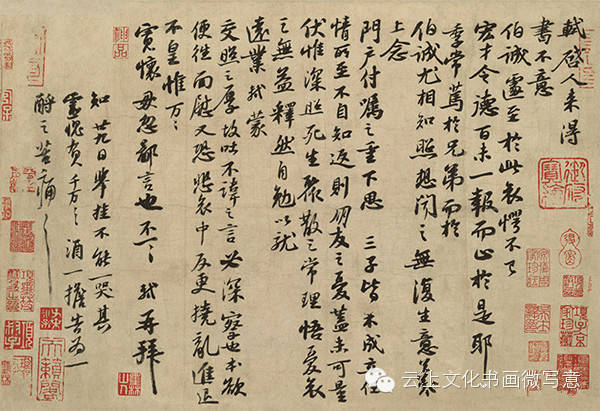 軾啓人来得
書不意
伯誠遽至於此哀愕不已
宏才令德百未一報而止於是耶
季常篤於兄弟而於
伯誠尤相知照想聞之無復生意若不
上念
門户付囑之重下思三子皆不成立任
情所至不自知返則朋友之憂蓋未可量
伏惟深照死生聚散之常理悟憂哀
之無益釋然自勉以就
遠業軾蒙
交照之厚故吐不諱之言必深察也本欲
便往面慰又恐悲哀中反更撓亂進退
不皇惟万万
寬懷毋忽鄙言也不一一軾再拜
知廿九日舉挂不能一哭其
靈愧負千万千万酒一擔告為一
酹之苦痛苦痛
云上文化书画微写意